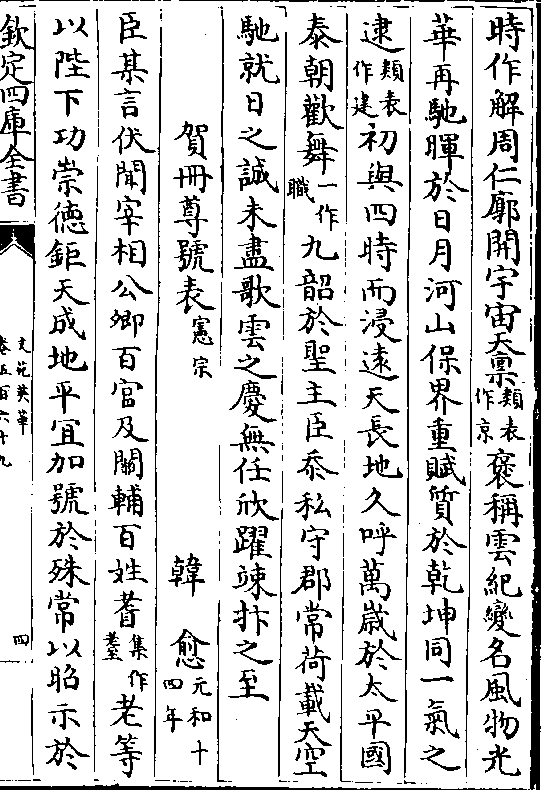 時作解周仁廓開宇宙天稟類表作京褒稱雲紀變名風物光
華再馳暉於日月河山保界重賦質於乾坤同一氣之
逮類表作建初與四時而浸遠天長地久呼萬歲於太平國
泰朝歡舞一作職九韶於聖主臣忝私守郡常荷載天空
馳就日之誠未盡歌雲之慶無任欣躍竦抃之至
賀冊尊號表憲宗 韓愈元和十四年
臣某言伏聞宰相公卿百官及關輔百姓耆集作耋老等
以陛下功崇德鉅天成地平宜加號於殊常以昭示於
欽定四庫全書
文苑英華
卷五百六十九
四